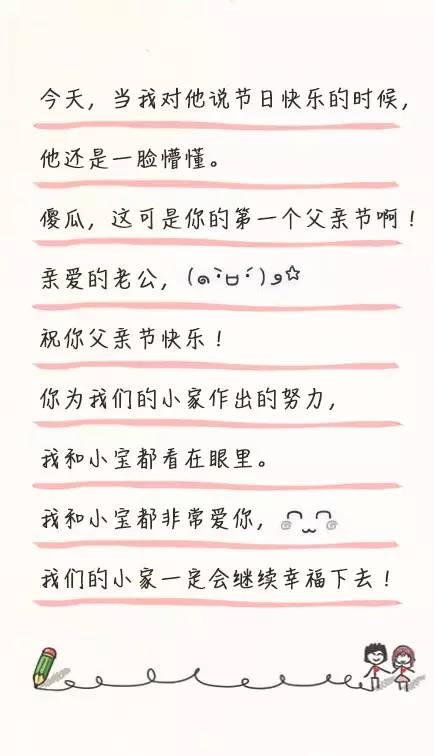 今天，当我对他说节日快乐的时候，
他还是一脸懵懂。
傻瓜，这可是你的第一个父亲节啊！
亲爱的老公，(๑•̀ㅂ•́)و✩
祝你父亲节快乐！
你为我们的小家作出的努力，
我和小宝都看在眼里。
我和小宝都非常爱你，
我们的小家一定会继续幸福下去！